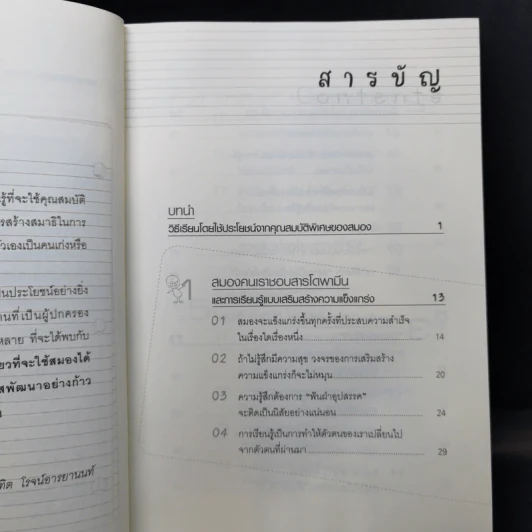 รู้ที่จะใช้คุณสมบัติ
รสร้างสมาธิในการ
ัวเองเป็นคนเก่งหรือ
นประโยชน์อย่างยิ่ง
านที่เป็นผู้ปกครอง
หลาย ที่จะได้พบกับ
ยวที่จะใช้สมองได้
สพัฒนาอย่างก้าว
ทิต โรจน์อารยานนท์
สารบัญ
บทนำ
วิธีเรียนโดยใช้ประโยชน์จากคุณสมบัติพิเศษของสมอง 1
1 สมองคนเราชอบสารโดพามีน
และการเรียนรู้แบบเสริมสร้างความแข็งแกร่ง 13
01 สมองจะแข็งแกร่งขึ้นทุกครั้งที่ประสบความสำเร็จ
ในเรื่องใดเรื่องหนึ่ง 14
02 ถ้าไม่รู้สึกมีความสุข วงจรของการเสริมสร้าง
ความแข็งแกร่งก็จะไม่หมุน 20
03 ความรู้สึกต้องการ “ฟันฝ่าอุปสรรค”
จะติดเป็นนิสัยอย่างแน่นอน 24
04 การเรียนรู้เป็นการทำให้ตัวตนของเราเปลี่ยนไป
จากตัวตนที่ผ่านมา 29